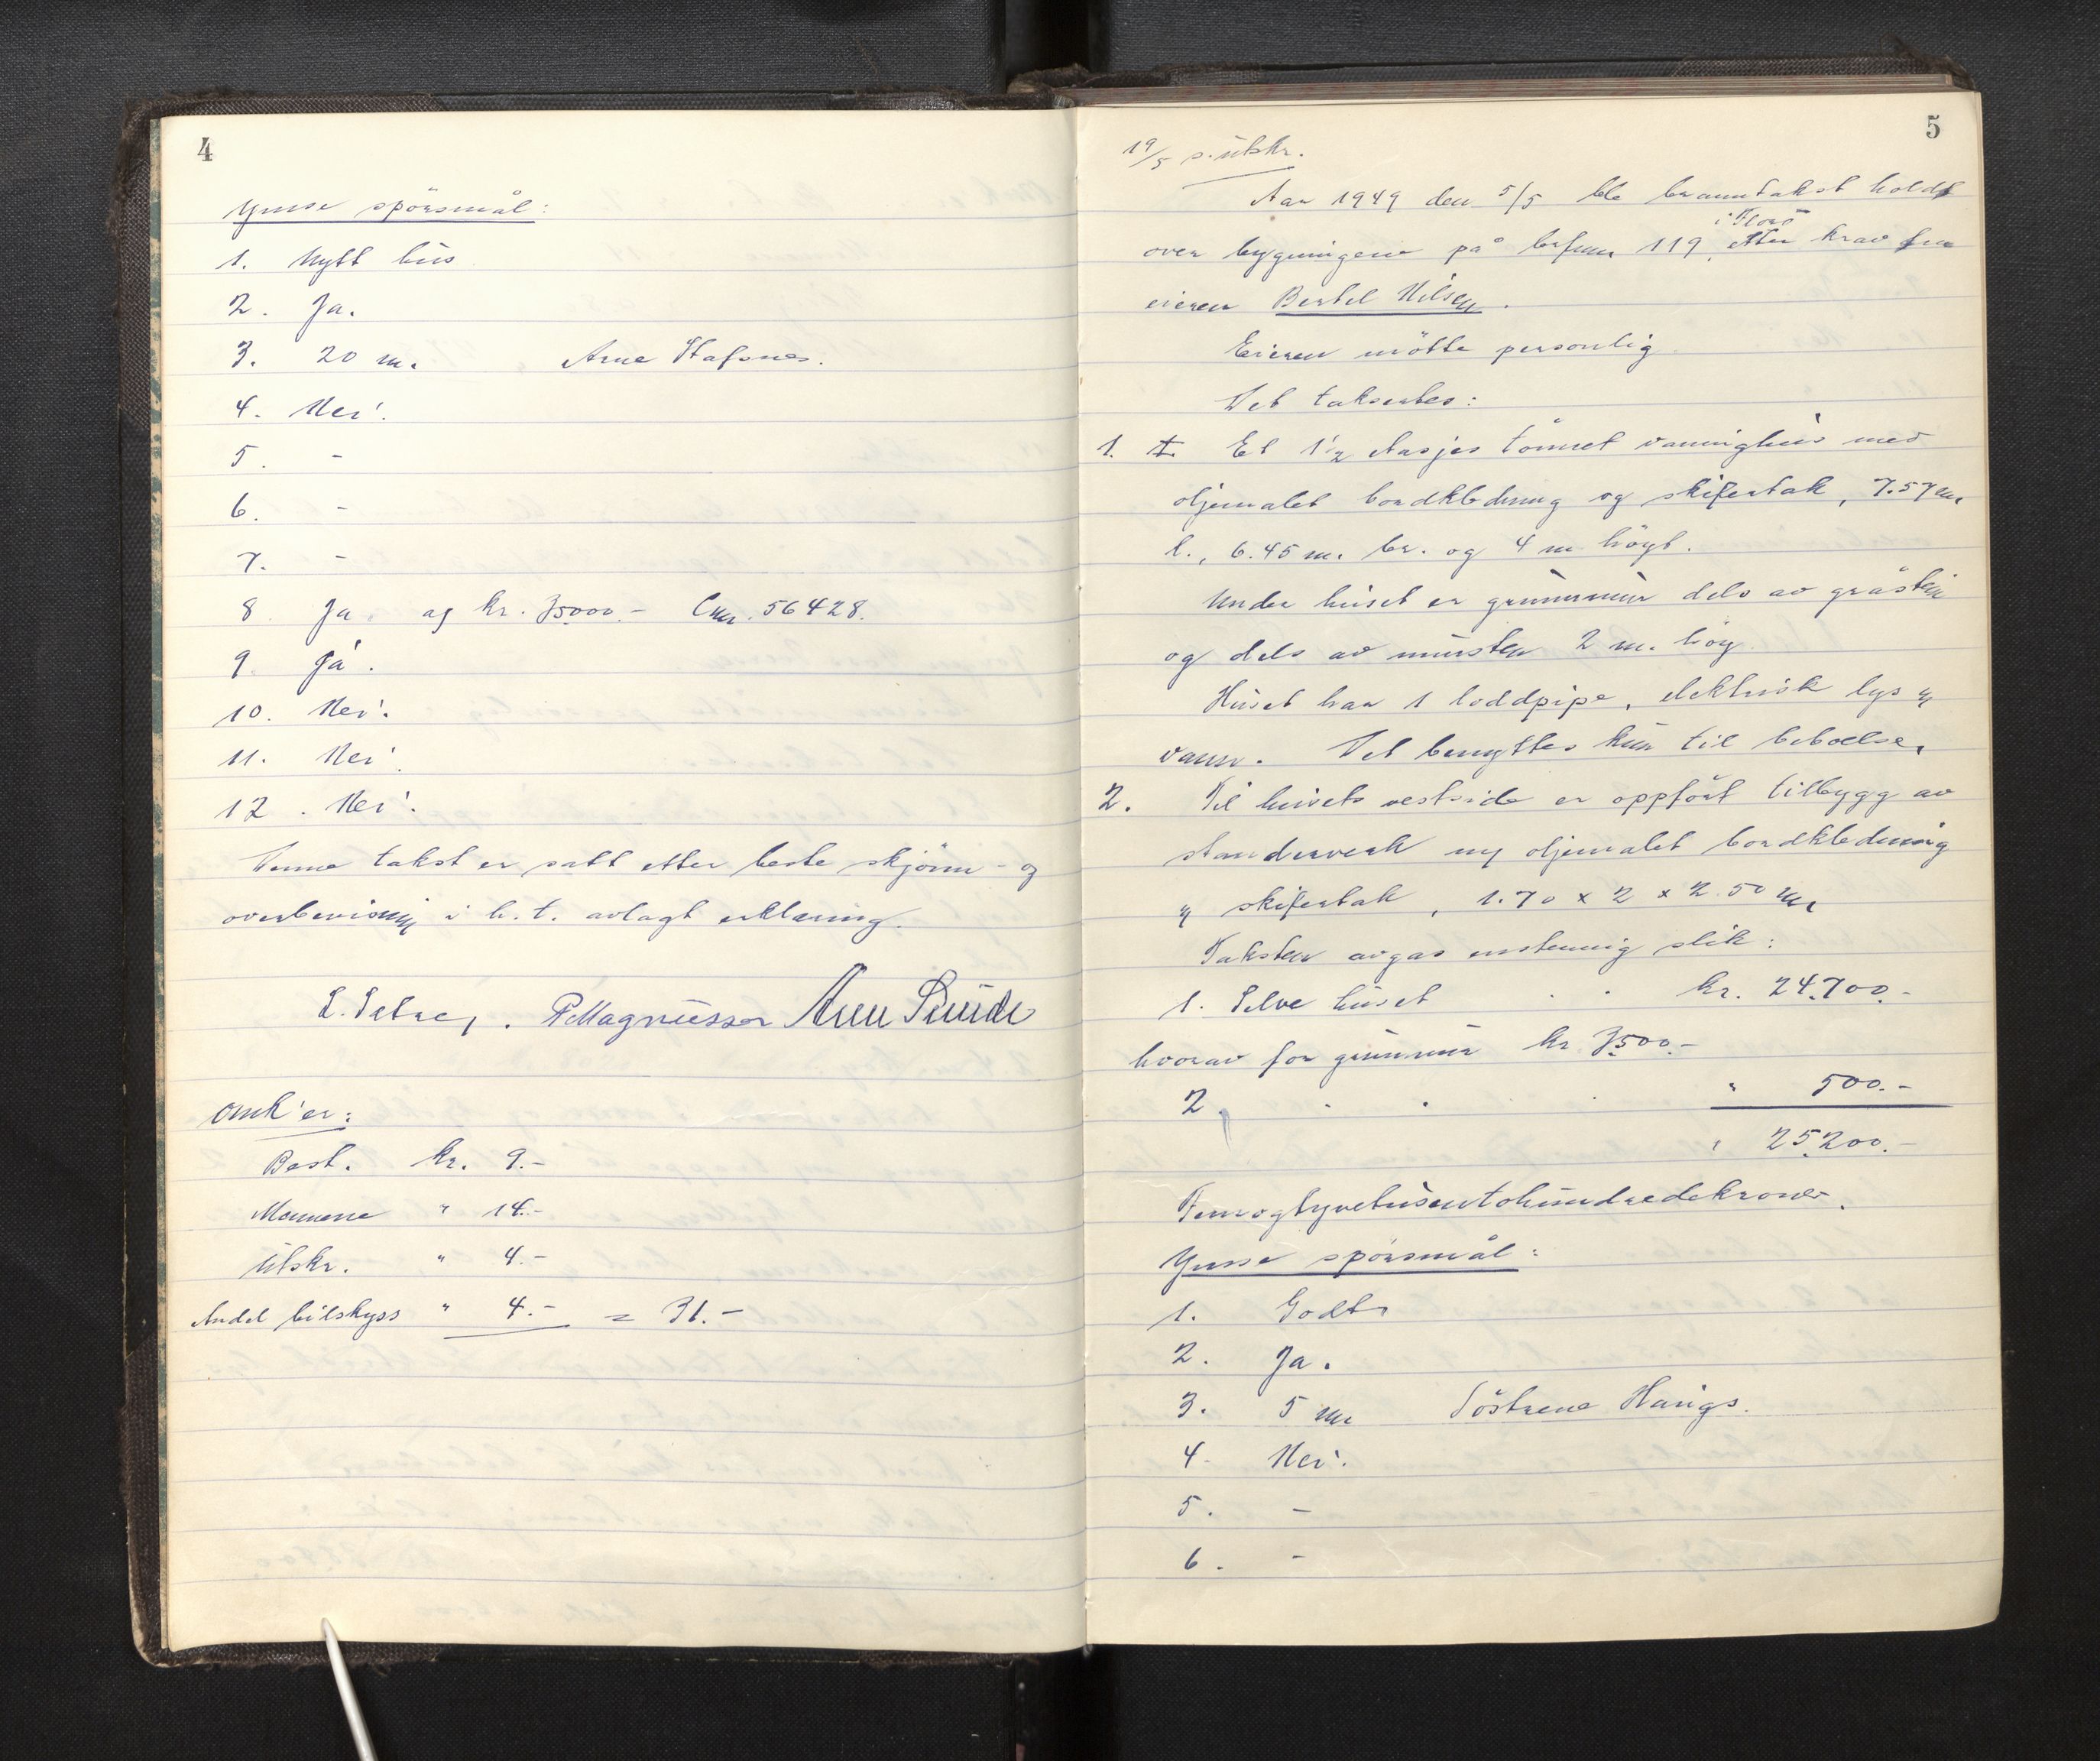 4
Ymse spörsmål:
1. Nytt hus
2. Ja.
3. 20 m. Arne Stafsnes.
4. Nei.
5. -
6. -
7. -
8. Ja. ag kr. 35000.- Cnr. 56428.
9. Ja.
10. Nei.
11. Nei.
12. Nei.
Denne takst er satt etter beste skjönn - og
overbevisning i h. t. avlagt erklæring.
P. Magnussen
Omk'er:
Best. kr. 9.-
Mennene " 14.-
Utskr. " 4.-
Andel bilskyss " 4.- = 31.-
5
19/5 s. utskr.
Aar 1949 den 5/5 ble branntakst holdt
i Florö
over bygningene på brfnr 119, etter krav fra
eieren Bertel Nilsen.
Eieren mötte personlig
Det taksertes:
1. Et 1½ etasjes tömret våninghus med
oljemalet bordkledning og skifertak, 7.57 m.
l., 6.45 m. br. og 4 m höyt.
Under huset er grunnmur dels av gråstein
og dels av mursten 2 m. höy.
Huset har 1 loddpipe, elektrisk lys og
vann. Det benyttes kun til beboelse.
2. Til husets vestside er oppfört tilbygg av
standerverk og oljemalet bordkledning
og skifertak, 1.70 x 2 x 2.50 m.
Taksten avgas enstemmig slik:
1. Selve huset . . kr. 24.700.-
hvorav for grunnmur kr 3500.-
2. . . . " 500.-
" 25.200.-
Femogtyvetusentohundredekroner.
Ymse spörsmål:
1. Godt
2. Ja.
3. 5 m Söstrene Haugs.
4. Nei.
5. -
6. -